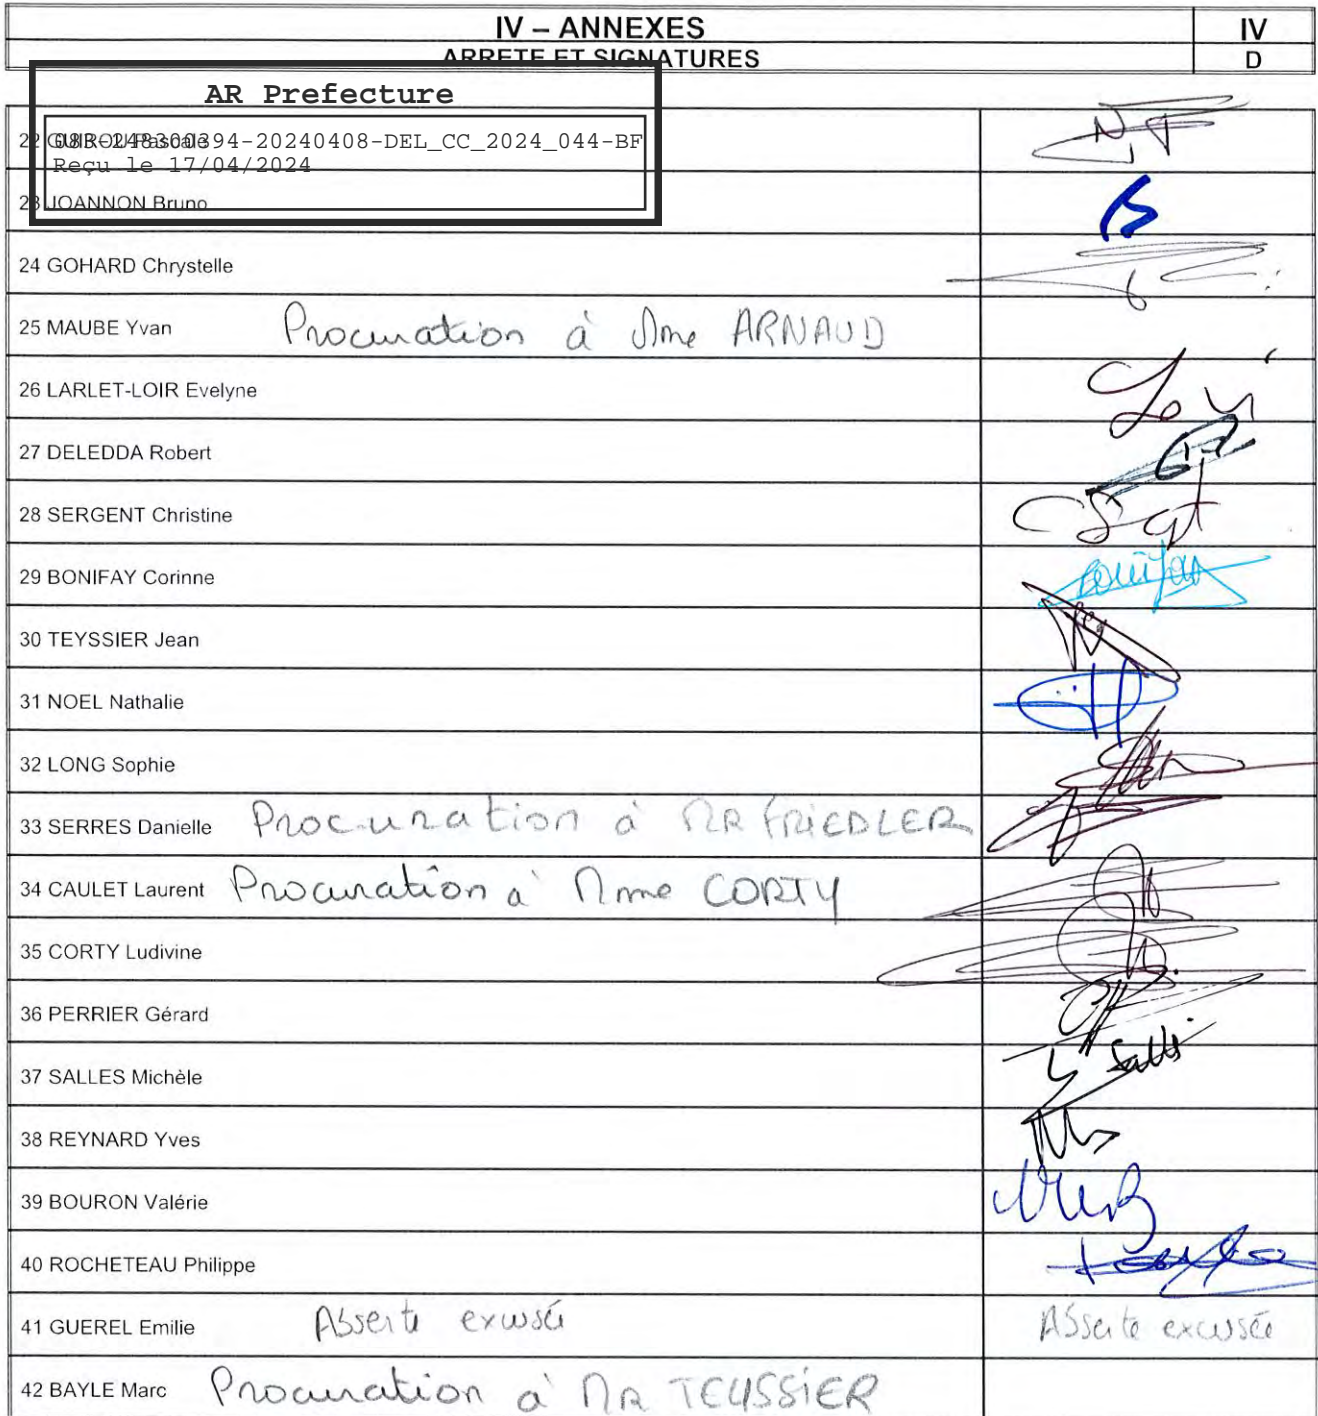 IV – ANNEXES
IV
ARRETE ET SIGNATURES
D
AR Prefecture
22 GUIROU Pascale
083-248300394-20240408-DEL_CC_2024_044-BF
Reçu le 17/04/2024
23 JOANNON Bruno
24 GOHARD Chrystelle
25 MAUBE Yvan Procuration à Mme ARNAUD
26 LARLET-LOIR Evelyne
27 DELEDDA Robert
28 SERGENT Christine
29 BONIFAY Corinne
30 TEYSSIER Jean
31 NOEL Nathalie
32 LONG Sophie
33 SERRES Danielle Procuration à MR FRIEDLER
34 CAULET Laurent Procuration à Mme CORTY
35 CORTY Ludivine
36 PERRIER Gérard
37 SALLES Michèle
38 REYNARD Yves
39 BOURON Valérie
40 ROCHETEAU Philippe
41 GUEREL Emilie Absente excusée Absente excusée
42 BAYLE Marc Procuration à MR TEYSSIER